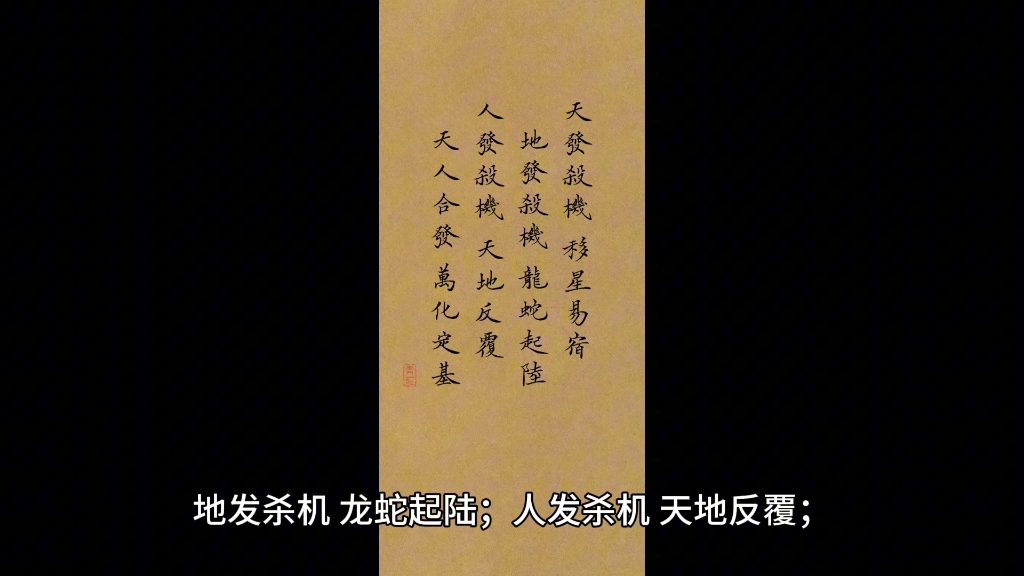 天發殺機 移星易宿
地發殺機 龍蛇起陸
人發殺機 天地反覆
天人合發 萬化定基
地发杀机 龙蛇起陆；人发杀机 天地反覆；